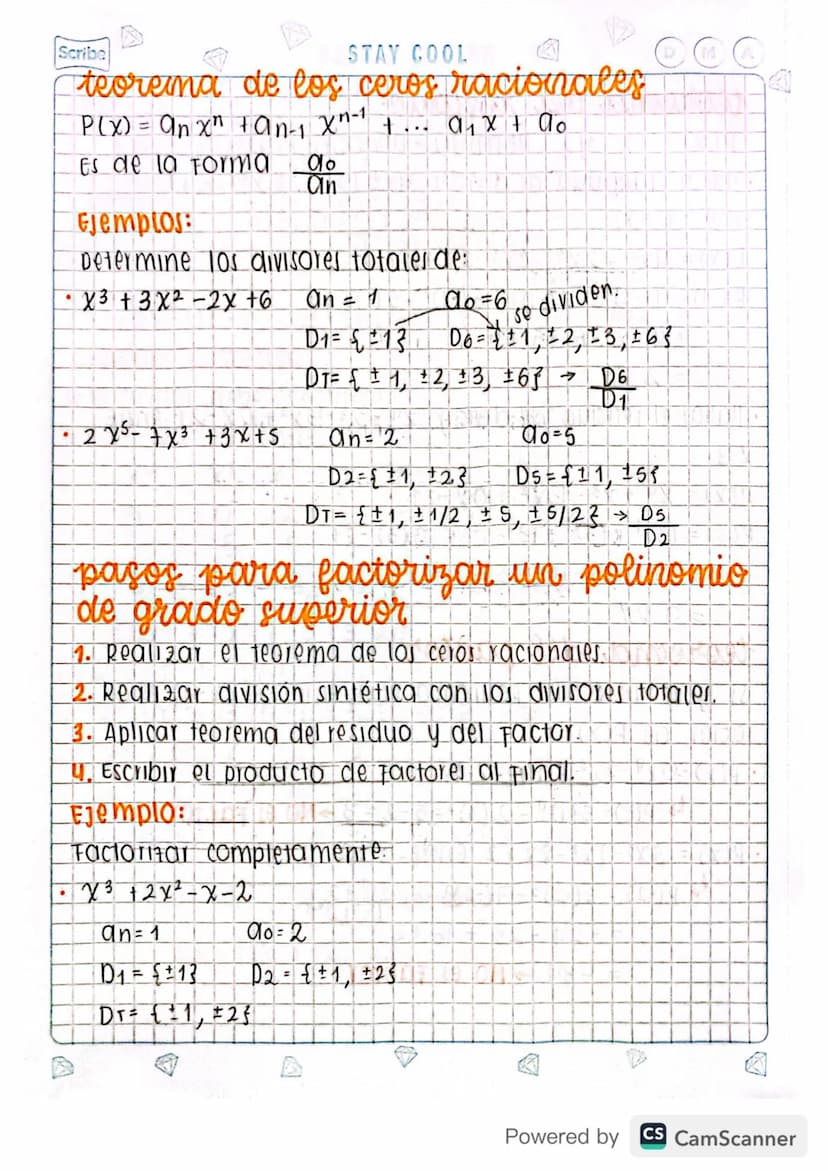 Scribe
STAY COOL
D M A
teorema de los ceros racionales
P(x) = anxⁿ + an-1 xⁿ⁻¹ + ... a1x + a0
Es de la forma a0/an
Ejemplos:
Determine los divisores totales de:
• x³ + 3x² - 2x + 6 an = 1 a0 = 6 se dividen.
D1 = {±1} D6 = {±1, ±2, ±3, ±6}
DT = {±1, ±2, ±3, ±6} → D6/D1
• 2x⁵ - 7x³ + 3x + 5 an = 2 a0 = 5
D2 = {±1, ±2} D5 = {±1, ±5}
DT = {±1, ±1/2, ±5, ±5/2} → D5/D2
pasos para factorizar un polinomio
de grado superior
1. Realizar el teorema de los ceros racionales.
2. Realizar división sintética con los divisores totales.
3. Aplicar teorema del residuo y del factor.
4. Escribir el producto de factores al final.
Ejemplo:
Factorizar completamente.
• x³ + 2x² - x - 2
an = 1 a0 = 2
D1 = {±1} D2 = {±1, ±2}
DT = {±1, ±2}
Powered by CS CamScanner